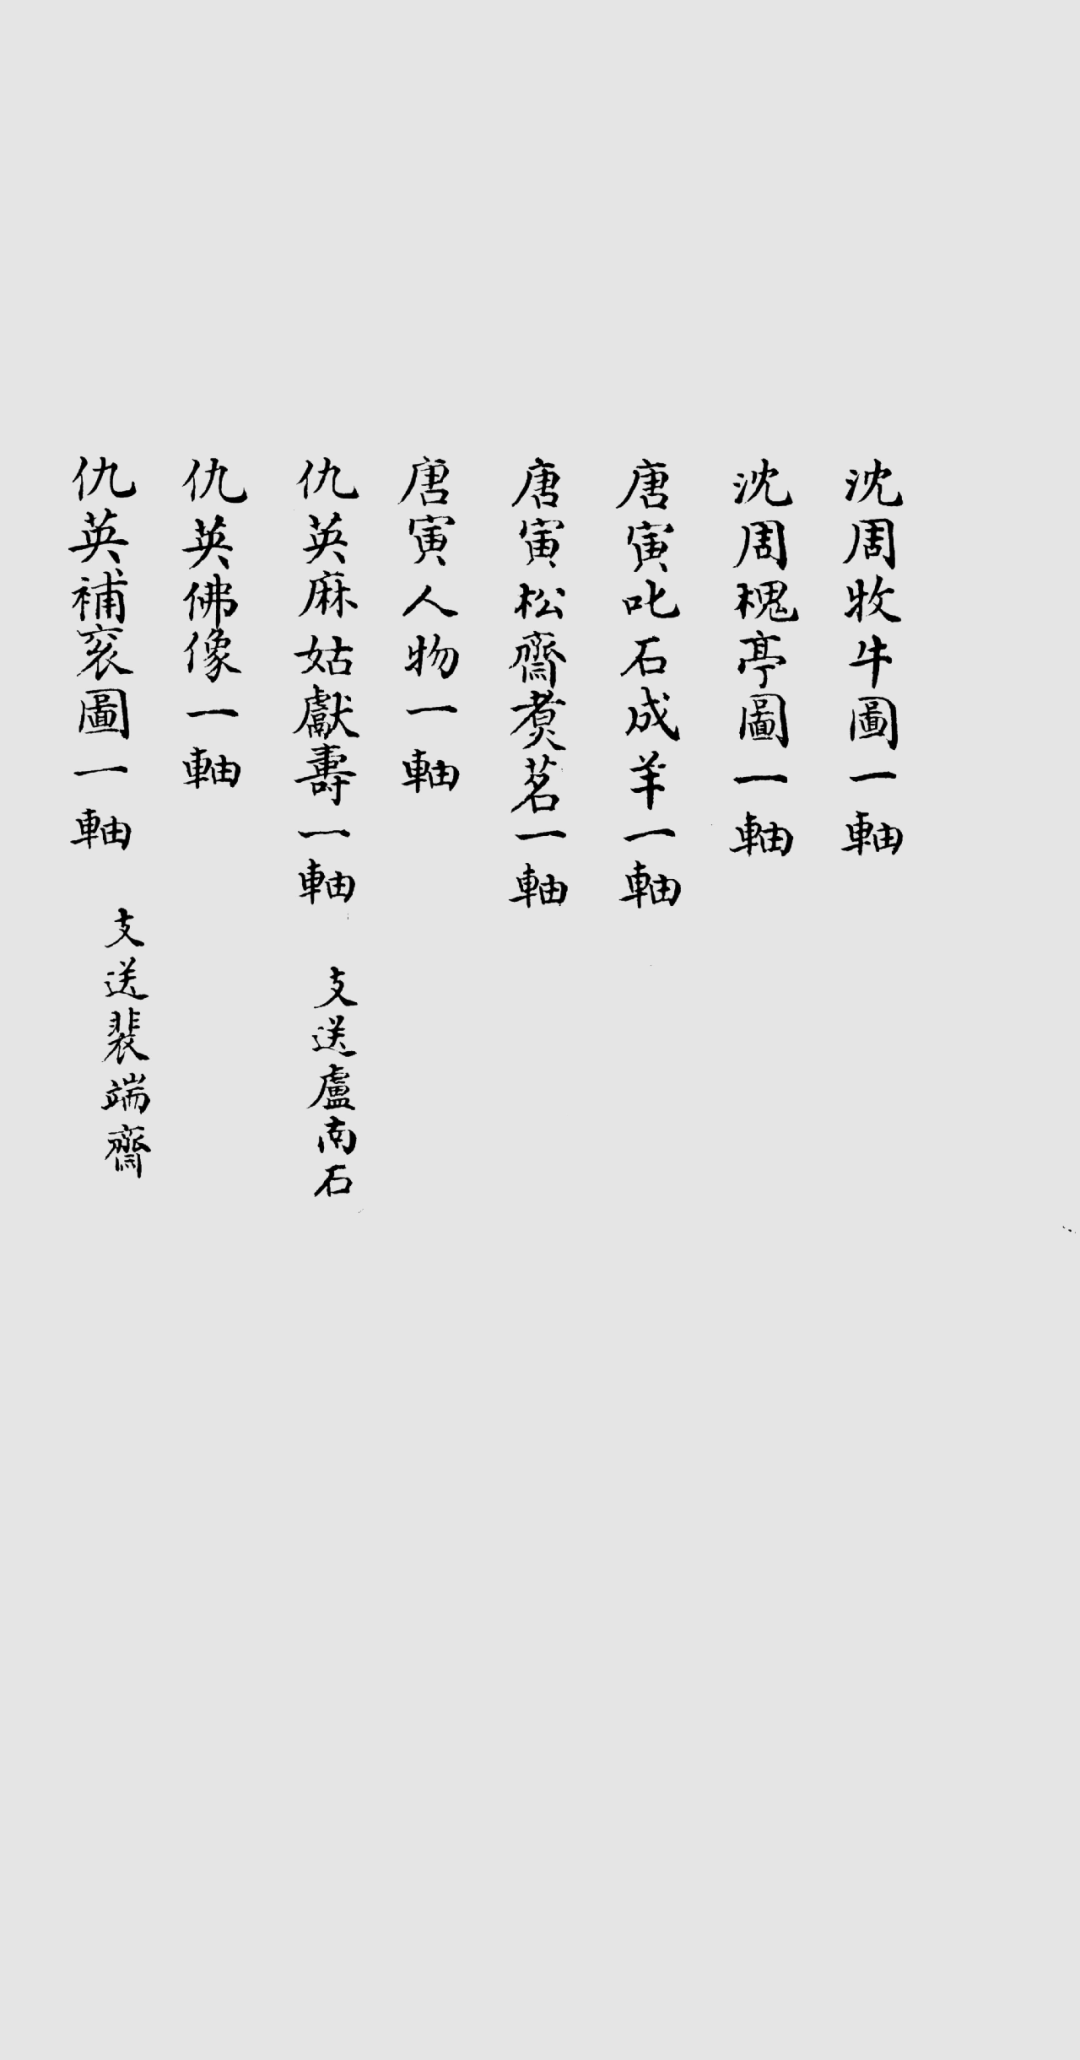 沈周牧牛圖一軸
沈周槐亭圖一軸
唐寅叱石成羊一軸
唐寅松齋煑茗一軸
唐寅人物一軸
仇英麻姑獻壽一軸 支送盧南石
仇英佛像一軸
仇英補衮圖一軸 支送裴端齋